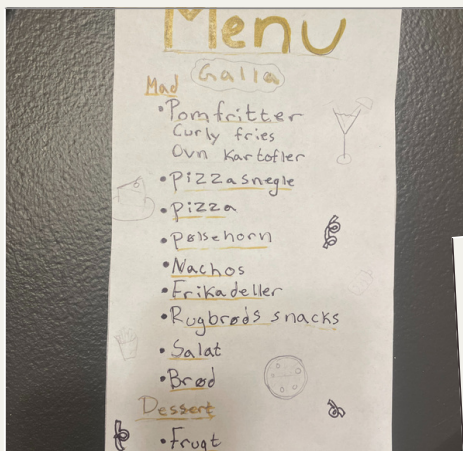 Menu
Galla
Mad
• Pomfritter
Curly fries
Ovn kartofler
• Pizzasnegle
• Pizza
• Pølsehorn
• Nachos
• Frikadeller
• Rugbrøds snacks
• Salat
• Brød
Dessert
• Frugt